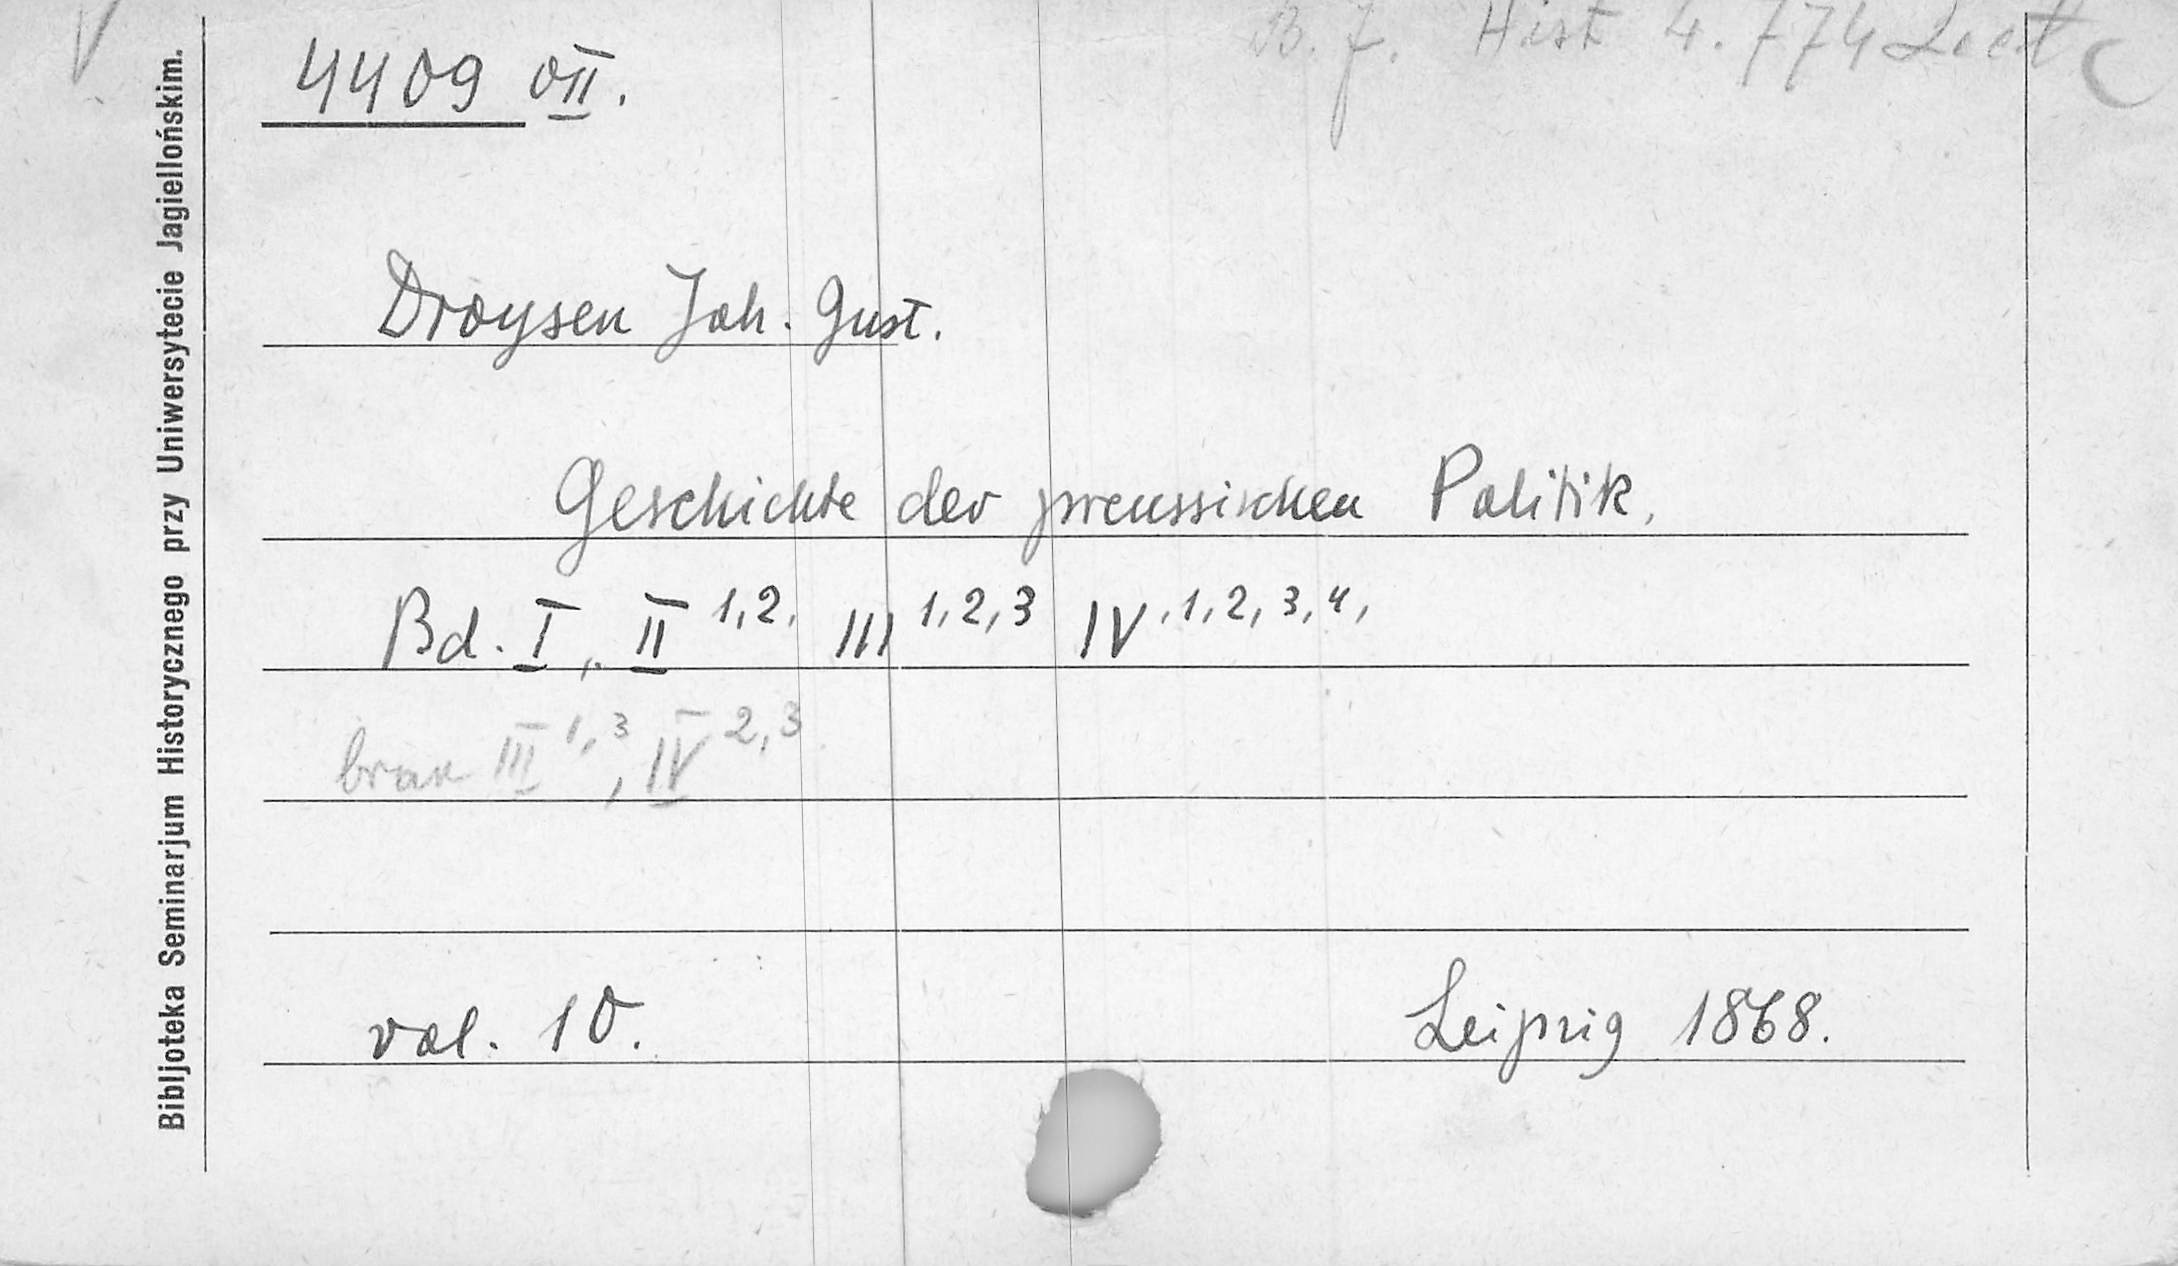 V
B. J. Hist 4. 774 Lect
4409 VII.
Droysen Joh. Gust.
Geschichte der preussischen Politik,
Bd. I, II 1,2, III 1,2,3 IV, 1,2,3,4,
brak III 1,3, IV 2,3
vol. 10.
Leipzig 1868.
Bibljoteka Seminarjum Historycznego przy Uniwersytecie Jagiellońskim.